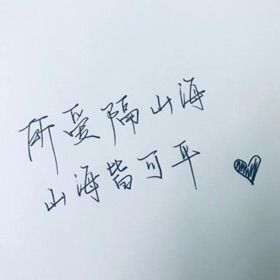 所爱隔山海
山海皆可平